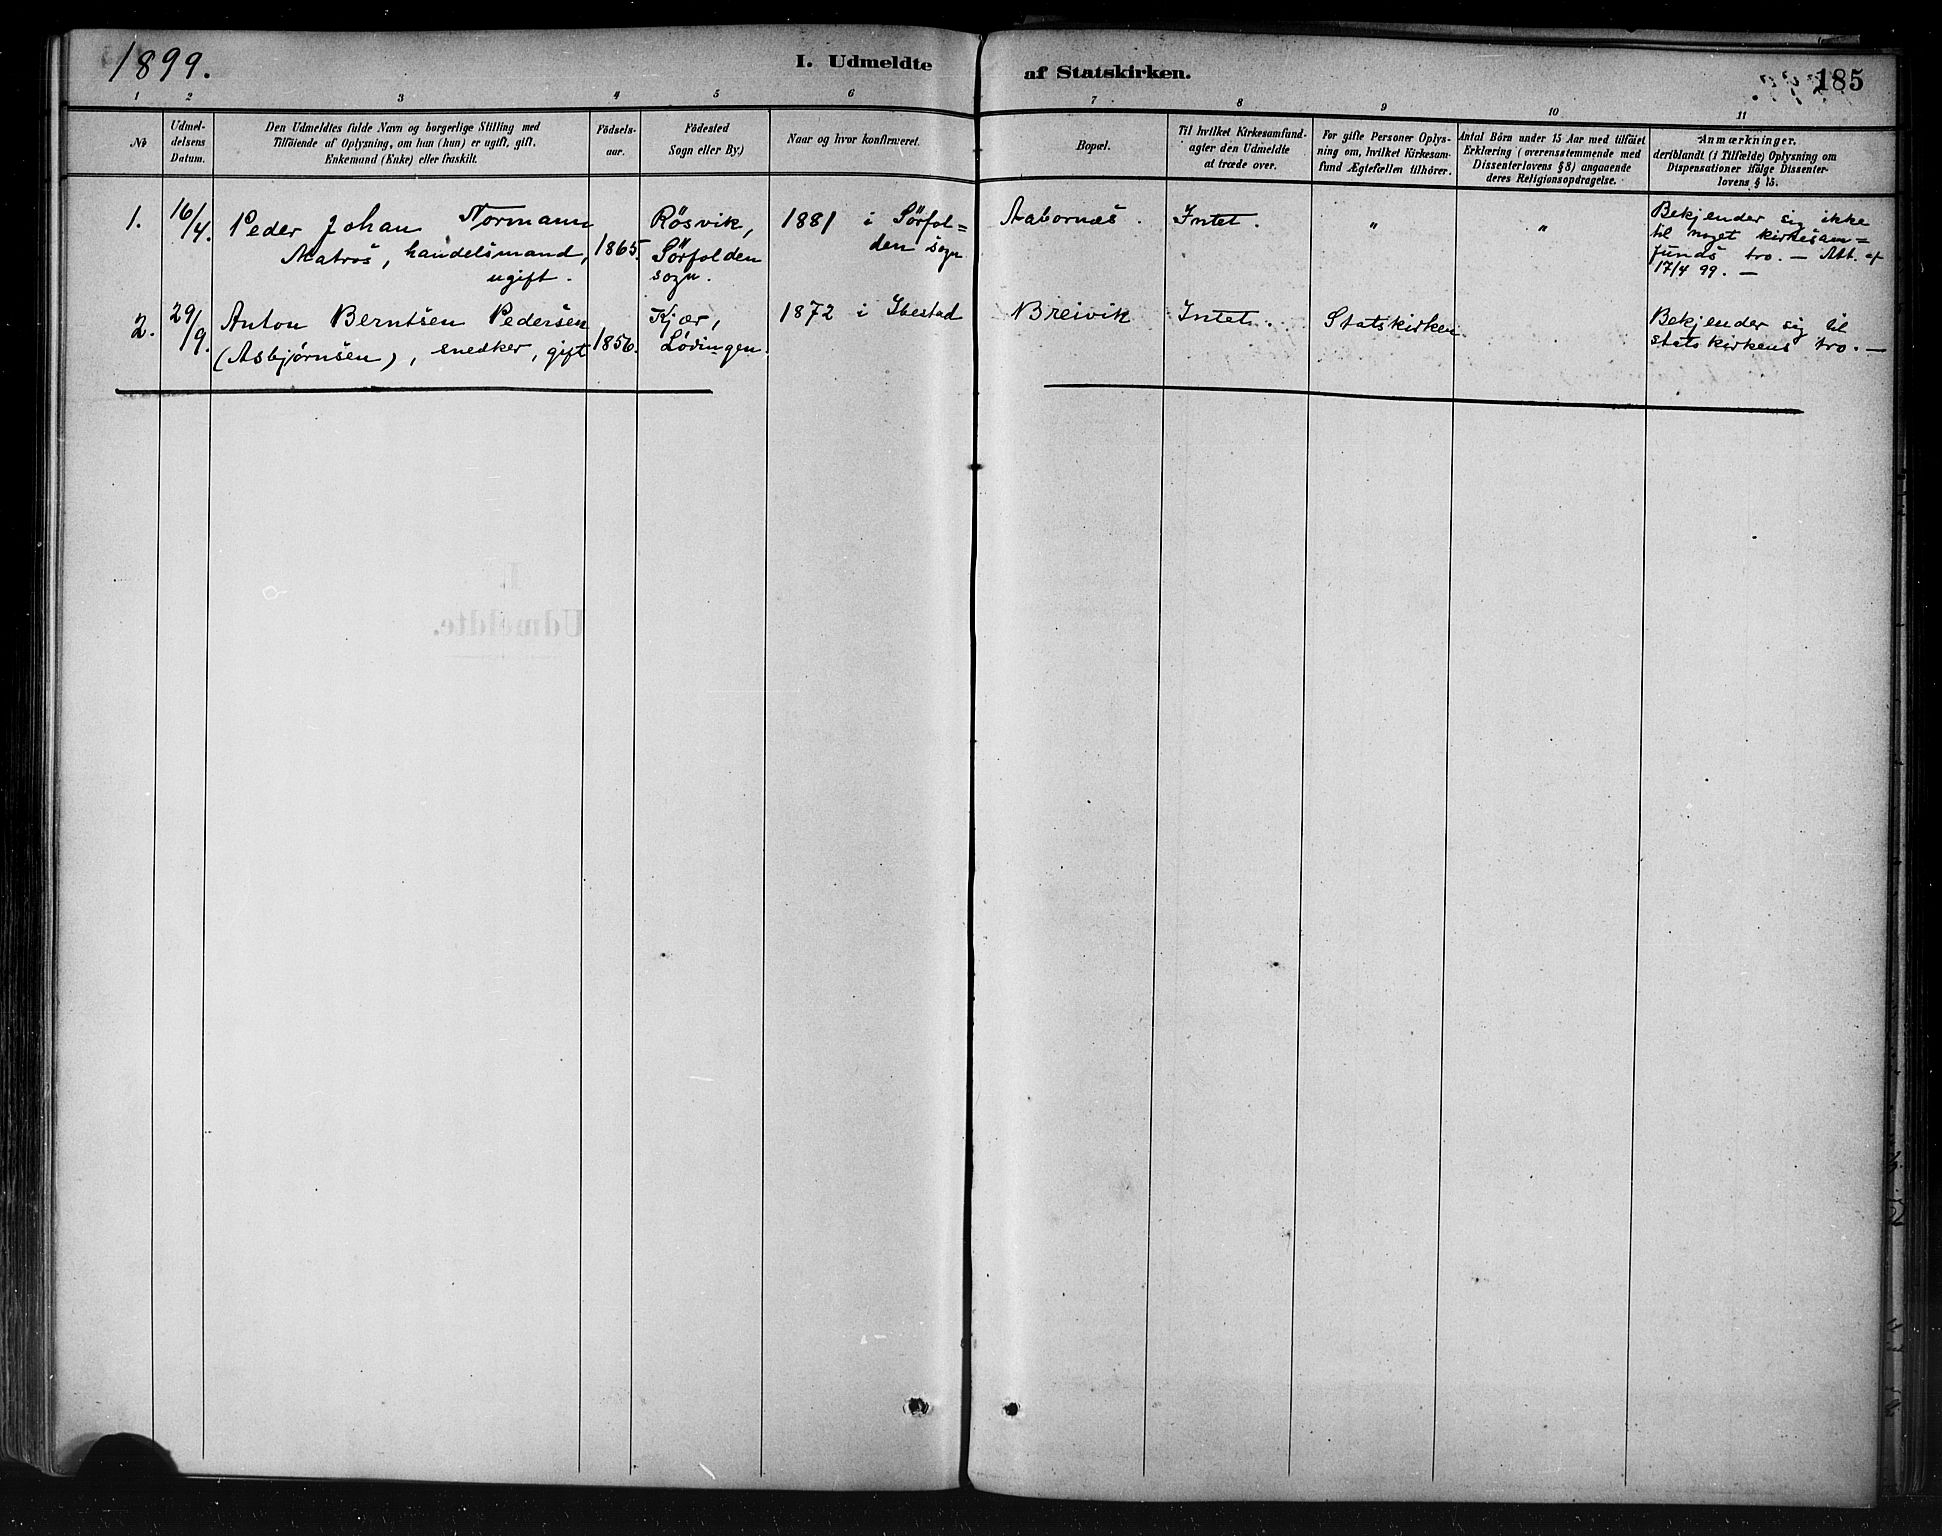 1899.
I. Udmeldte
af Statskirken.
185
1
2
3
4
5
6
7
8
9
10
11
No
Udmel-
delsens
Datum.
Den Udmeldtes fulde Navn og borgerlige Stilling med
Tilföiende af Oplysning, om han (hun) er ugift, gift,
Enkemand (Enke) eller fraskilt.
Födsels-
aar.
Födested
Sogn eller By.)
Naar og hvor konfirmeret.
Bopæl.
Til hvilket Kirkesamfund-
agter den Udmeldte
at træde over.
For gifte Personer Oplys-
ning om, hvilket Kirkesam-
fund Ægtefællen tilhörer.
Antal Börn under 15 Aar med tilföiet
Erklæring (overensstemmende med
Dissenterlovens § 8) angaaende
deres Religionsopdragelse.
Anmærkninger,
deriblandt (i Tilfælde) Oplysning om
Dispensationer ifölge Dissenter-
lovens § 15.
1.
16/4.
Peder Johan Normann
Matros, handelsmand,
ugift.
1865.
Rösvik,
Sörfolden
sogn.
1881 i Sörfol=
den sogn
Aabornæs.
Intet.
"
"
Bekjender sig ikke
til noget kirkesam=
funds tro. — Att. af
17/4 99. —
2.
29/9.
Anton Berntsen Pedersen
(Asbjørnsen), snedker, gift
1856.
Kjær,
Lødingen.
1872 i Ibestad
Breivik
Intet.
Statskirken
Bekjender sig til
statskirkens tro. —
I.
Udmeldte.